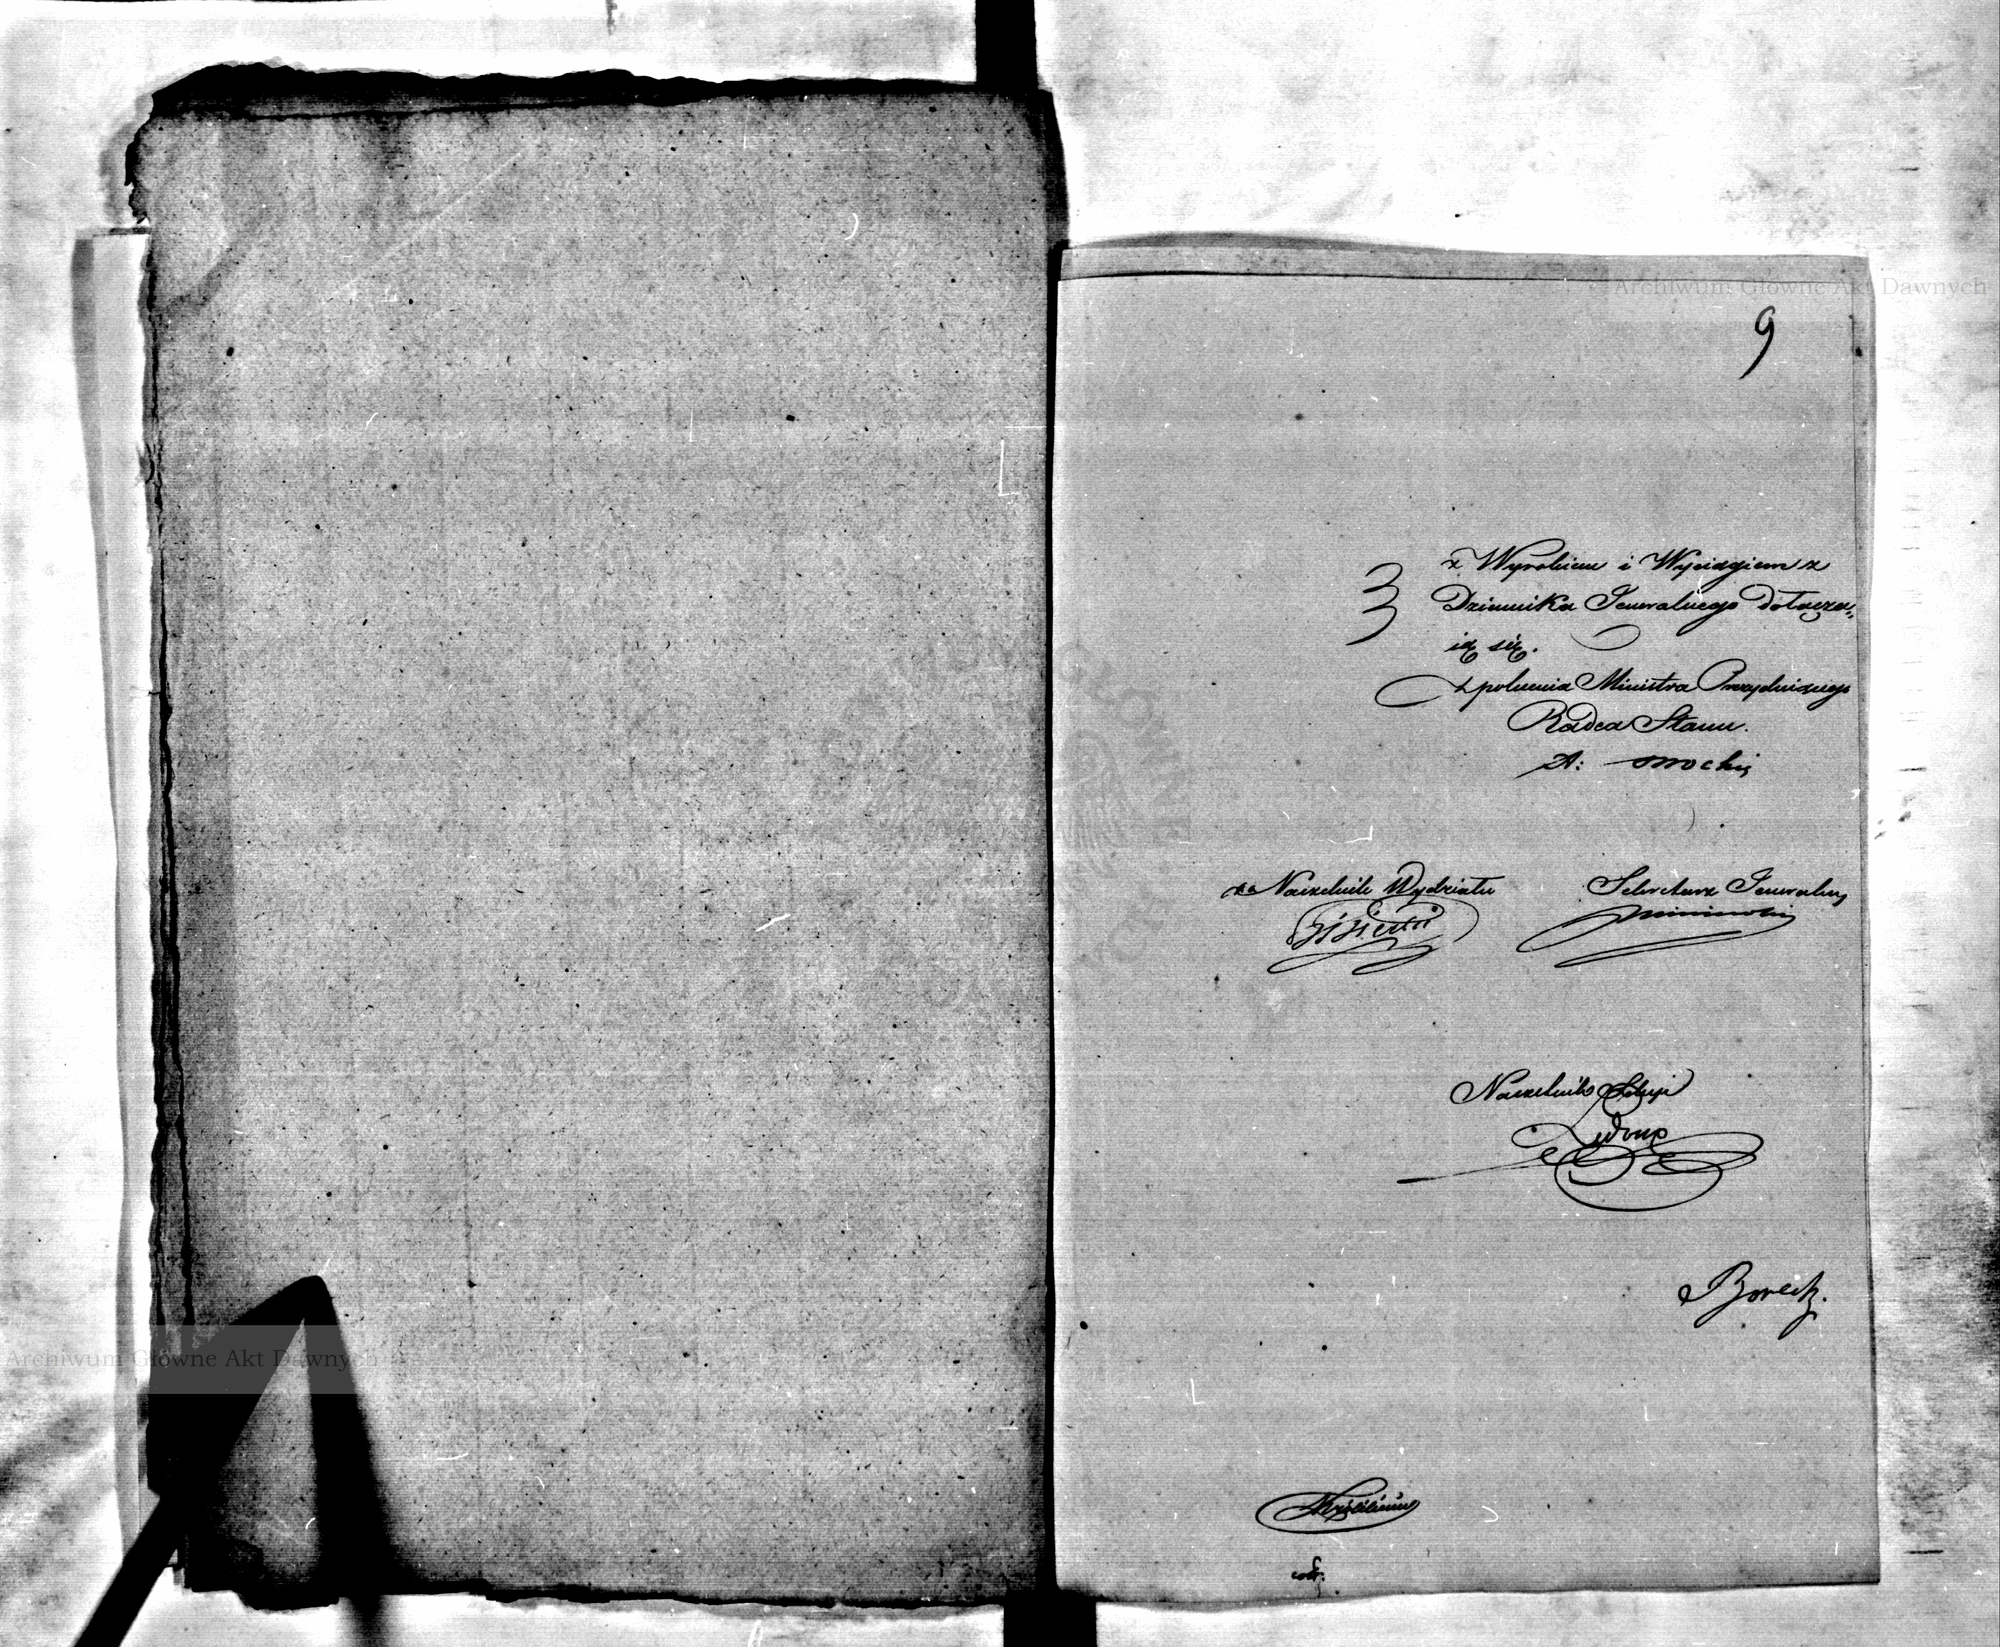 Archiwum Główne Akt Dawnych
9
z Wyrokiem i Wyciągiem z
Dziennika Jeneralnego dołącza„
ią się.
z polecenia Ministra Prezyduiącego
Radca Stanu.
A:
za Naczelnik Wydziału
Sekretarz Jeneralny
Naczelnik Sekcji
Archiwum Główne Akt Dawnych